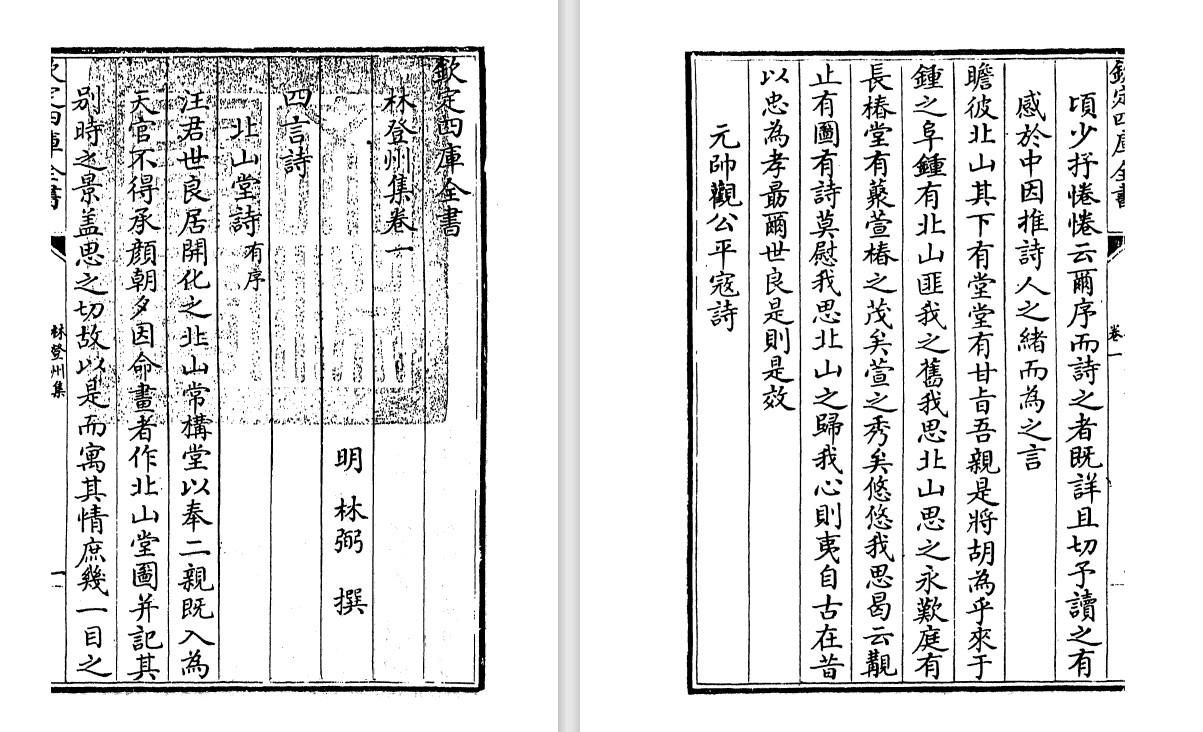 欽定四庫全書
林登州集卷一
明 林弼 撰
四言詩
北山堂詩有序
汪君世良居開化之北山常構堂以奉二親既入為
天官不得承顏朝夕因命畫者作北山堂圖并記其
别時之景盖思之切故以是而寓其情庶幾一目之
欽定四庫全書
林登州集
一
欽定四庫全書
卷一
頃少抒惓惓云爾序而詩之者既詳且切予讀之有
感於中因推詩人之緒而為之言
瞻彼北山其下有堂堂有甘旨吾親是將胡為乎來于
鍾之阜鍾有北山匪我之舊我思北山思之永歎庭有
長椿堂有藂萱椿之茂矣萱之秀矣悠悠我思曷云覯
止有圖有詩莫慰我思北山之歸我心則夷自古在昔
以忠為孝朂爾世良是則是效
元帥觀公平寇詩